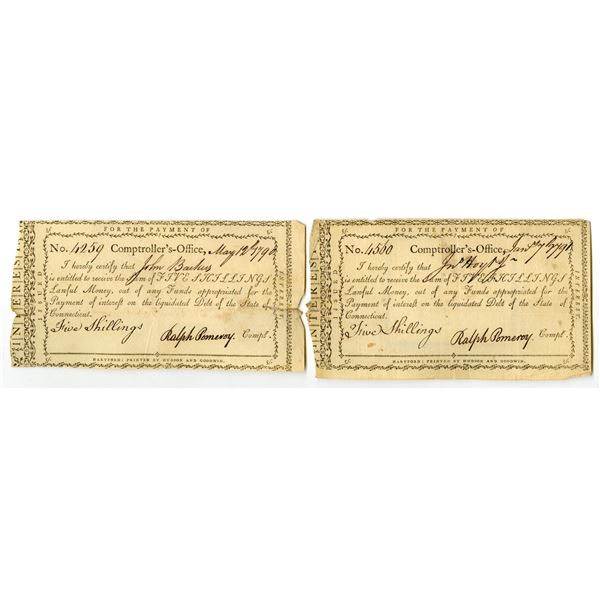 FOR THE PAYMENT OF
INTEREST
ISSUED
No. 4259 Comptroller's-Office, May 12th 1790
I hereby certify that John Backus
is entitled to receive the Sum of FIVE SHILLINGS
Lawful Money, out of any Funds appropriated for the
Payment of interest on the liquidated Debt of the State of
Connecticut.
Five Shillings
Ralph Pomeroy. Compt.
HARTFORD: PRINTED BY HUDSON AND GOODWIN.
FOR THE PAYMENT OF
INTEREST
No. 4560 Comptroller's-Office, Jany. 7th 1791.
I hereby certify that Jno. Hoyt
is entitled to receive the Sum of FIVE SHILLINGS
Lawful Money, out of any Funds appropriated for the
Payment of interest on the liquidated Debt of the State of
Connecticut.
Five Shillings
Ralph Pomeroy. Compt.
HARTFORD: PRINTED BY HUDSON AND GOODWIN.
INTEREST.